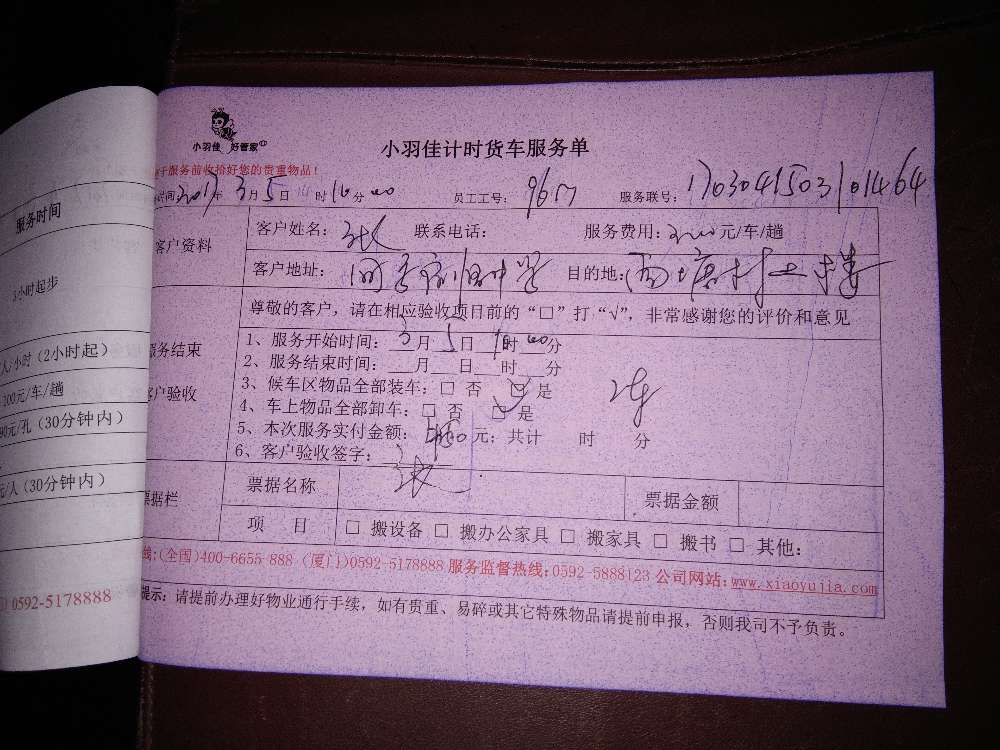 服务时间
小时起步
人/小时（2小时起）
100元/车/趟
90元/孔（30分钟内）
元/人（30分钟内）
0592-5178888
小羽佳 好管家
小羽佳计时货车服务单
于服务前收拾好您的贵重物品！
时间 2017年 3月 5日 时 10分 员工工号： 服务联号：1703041503101464
客户资料
客户姓名：张 联系电话： 服务费用：200元/车/趟
客户地址： 目的地：
尊敬的客户，请在相应验收项目前的“□”打“√”，非常感谢您的评价和意见
服务结束
客户验收
1、服务开始时间：3月5日 时00分
2、服务结束时间：___月___日___时___分
3、候车区物品全部装车：□ 否 □ 是
4、车上物品全部卸车：□ 否 □ 是
5、本次服务实付金额： 元；共计 时 分
6、客户验收签字：张
票据栏
票据名称 票据金额
项 目 □ 搬设备 □ 搬办公家具 □ 搬家具 □ 搬书 □ 其他：
线:(全国)400-6655 888 (厦门)0592-5178888 服务监督热线:0592-5888123 公司网站:www.xiaoyujia.com
提示：请提前办理好物业通行手续，如有贵重、易碎或其它特殊物品请提前申报，否则我司不予负责。